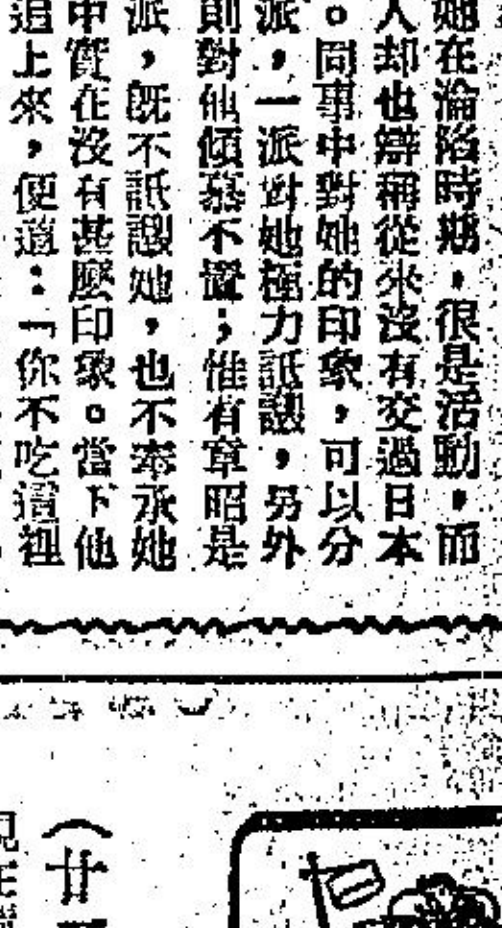 她在淪陷時期，很是活動，而
人却也辯稱從來沒有交過日本
。同事中對她的印象，可以分
派，一派對她極力詆譭，另外
則對他傾慕不置；惟有章昭是
派，既不詆譭她，也不奉承她
中實在沒有甚麼印象。當下他
追上來，便道：「你不吃這裡
（廿